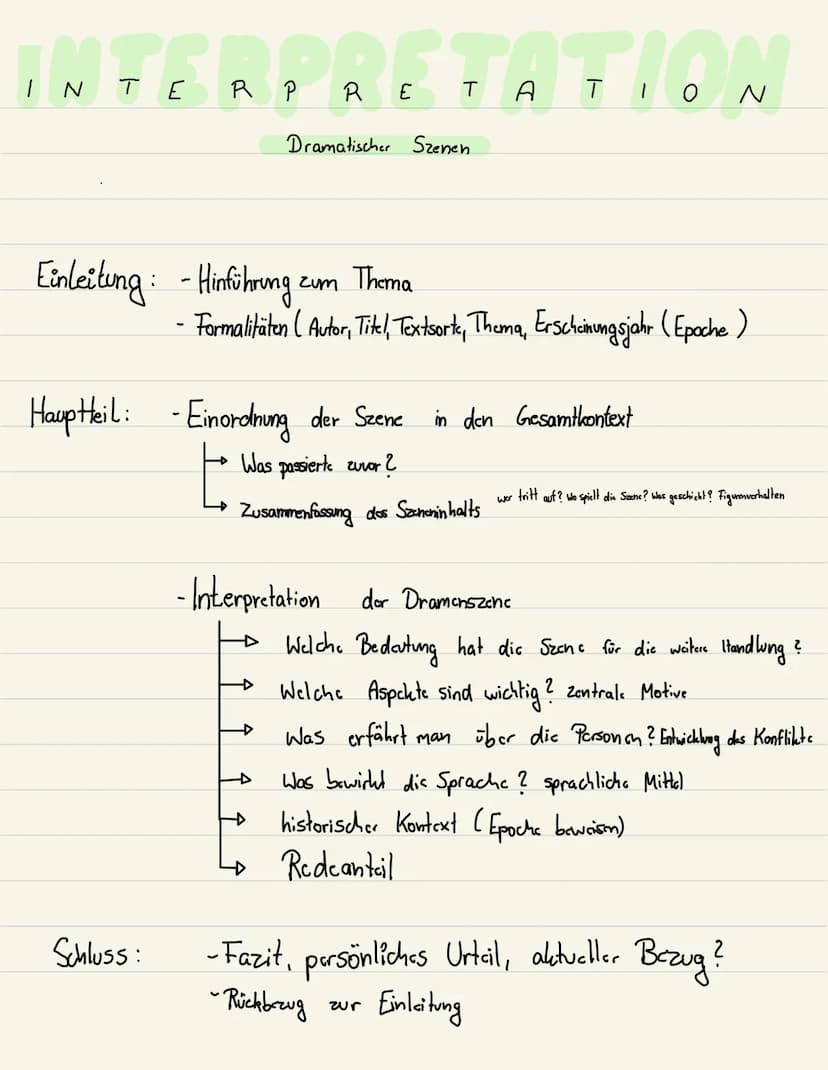 INTERPRETATION
Dramatischer Szenen
Einleitung: - Hinführung zum Thema
- Formalitäten (Autor, Titel, Textsorte, Thema, Erscheinungsjahr (Epoche)
Hauptteil: - Einordnung der Szene in den Gesamtkontext
Was passierte zuvor?
Zusammenfassung des Szeneninhalts wer tritt auf? Wo spielt die Szene? Was geschieht? Figurenverhalten
- Interpretation der Dramenszene
Welche Bedeutung hat die Szene für die weitere Handlung?
Welche Aspekte sind wichtig? zentrale Motive
Was erfährt man über die Personen? Entwicklung des Konflikts
Was bewirkt die Sprache? sprachliche Mittel
historischer Kontext (Epoche beweisen)
Redeanteil
Schluss: - Fazit, persönliches Urteil, aktueller Bezug?
- Rückbezug zur Einleitung